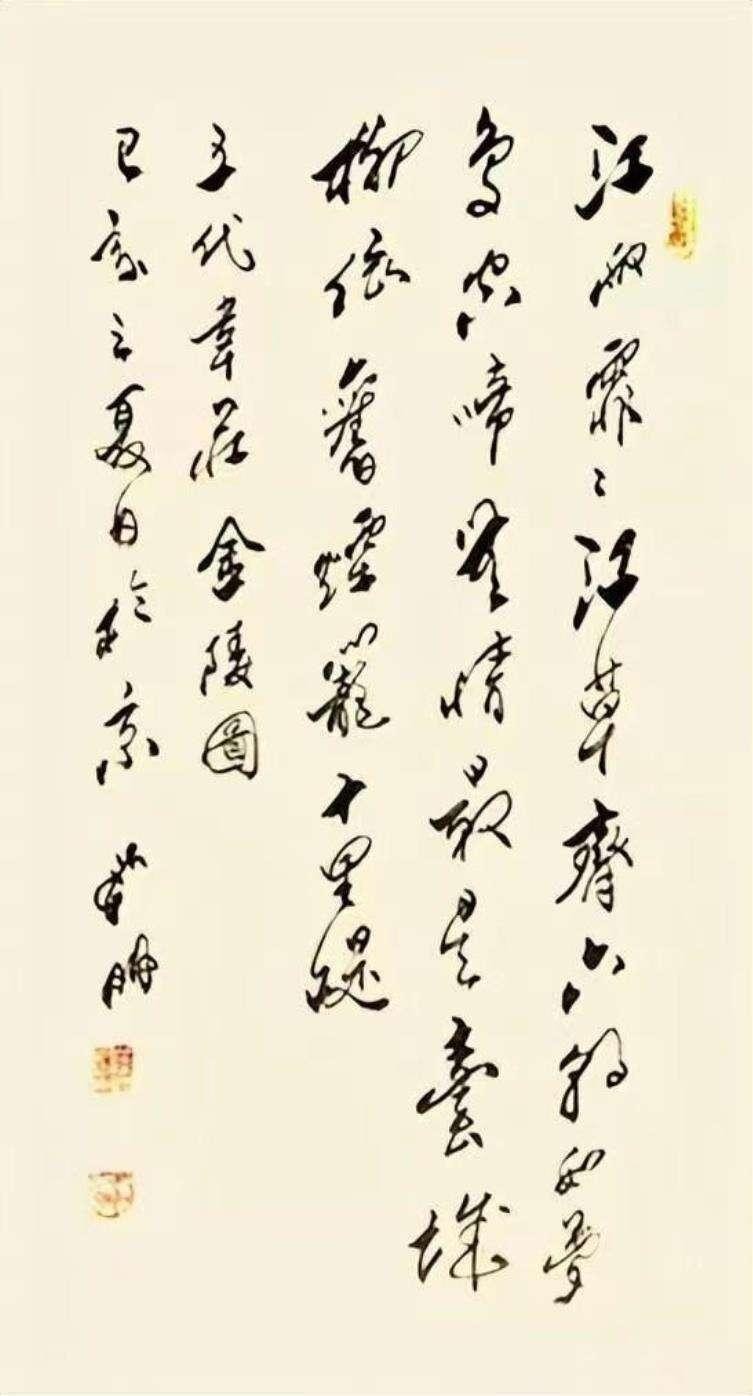 江雨霏々江草齊六朝如夢
鳥空啼無情最是臺城
柳依舊煙籠十里堤
五代韋莊金陵圖
己亥之夏日於京